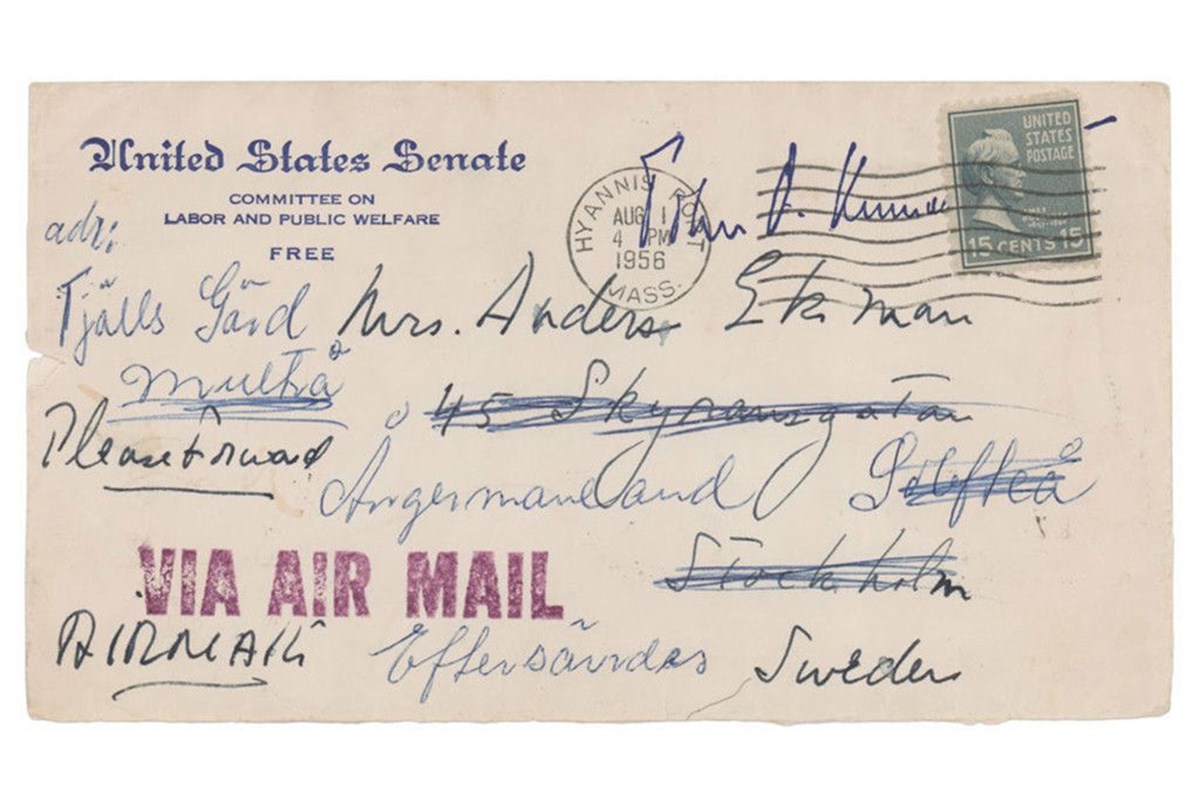 United States Senate
COMMITTEE ON
LABOR AND PUBLIC WELFARE
FREE
HYANNIS PORT
AUG 1
4 PM
1956
MASS.
UNITED
STATES
POSTAGE
15 CENTS 15
adr:
Tjälls Gård
Mrs. Anders Ekman
Multrå
45
Please Forward
Ångermanland
Stockholm
VIA AIR MAIL
AIRMAIL
Eftersändes
Sweden